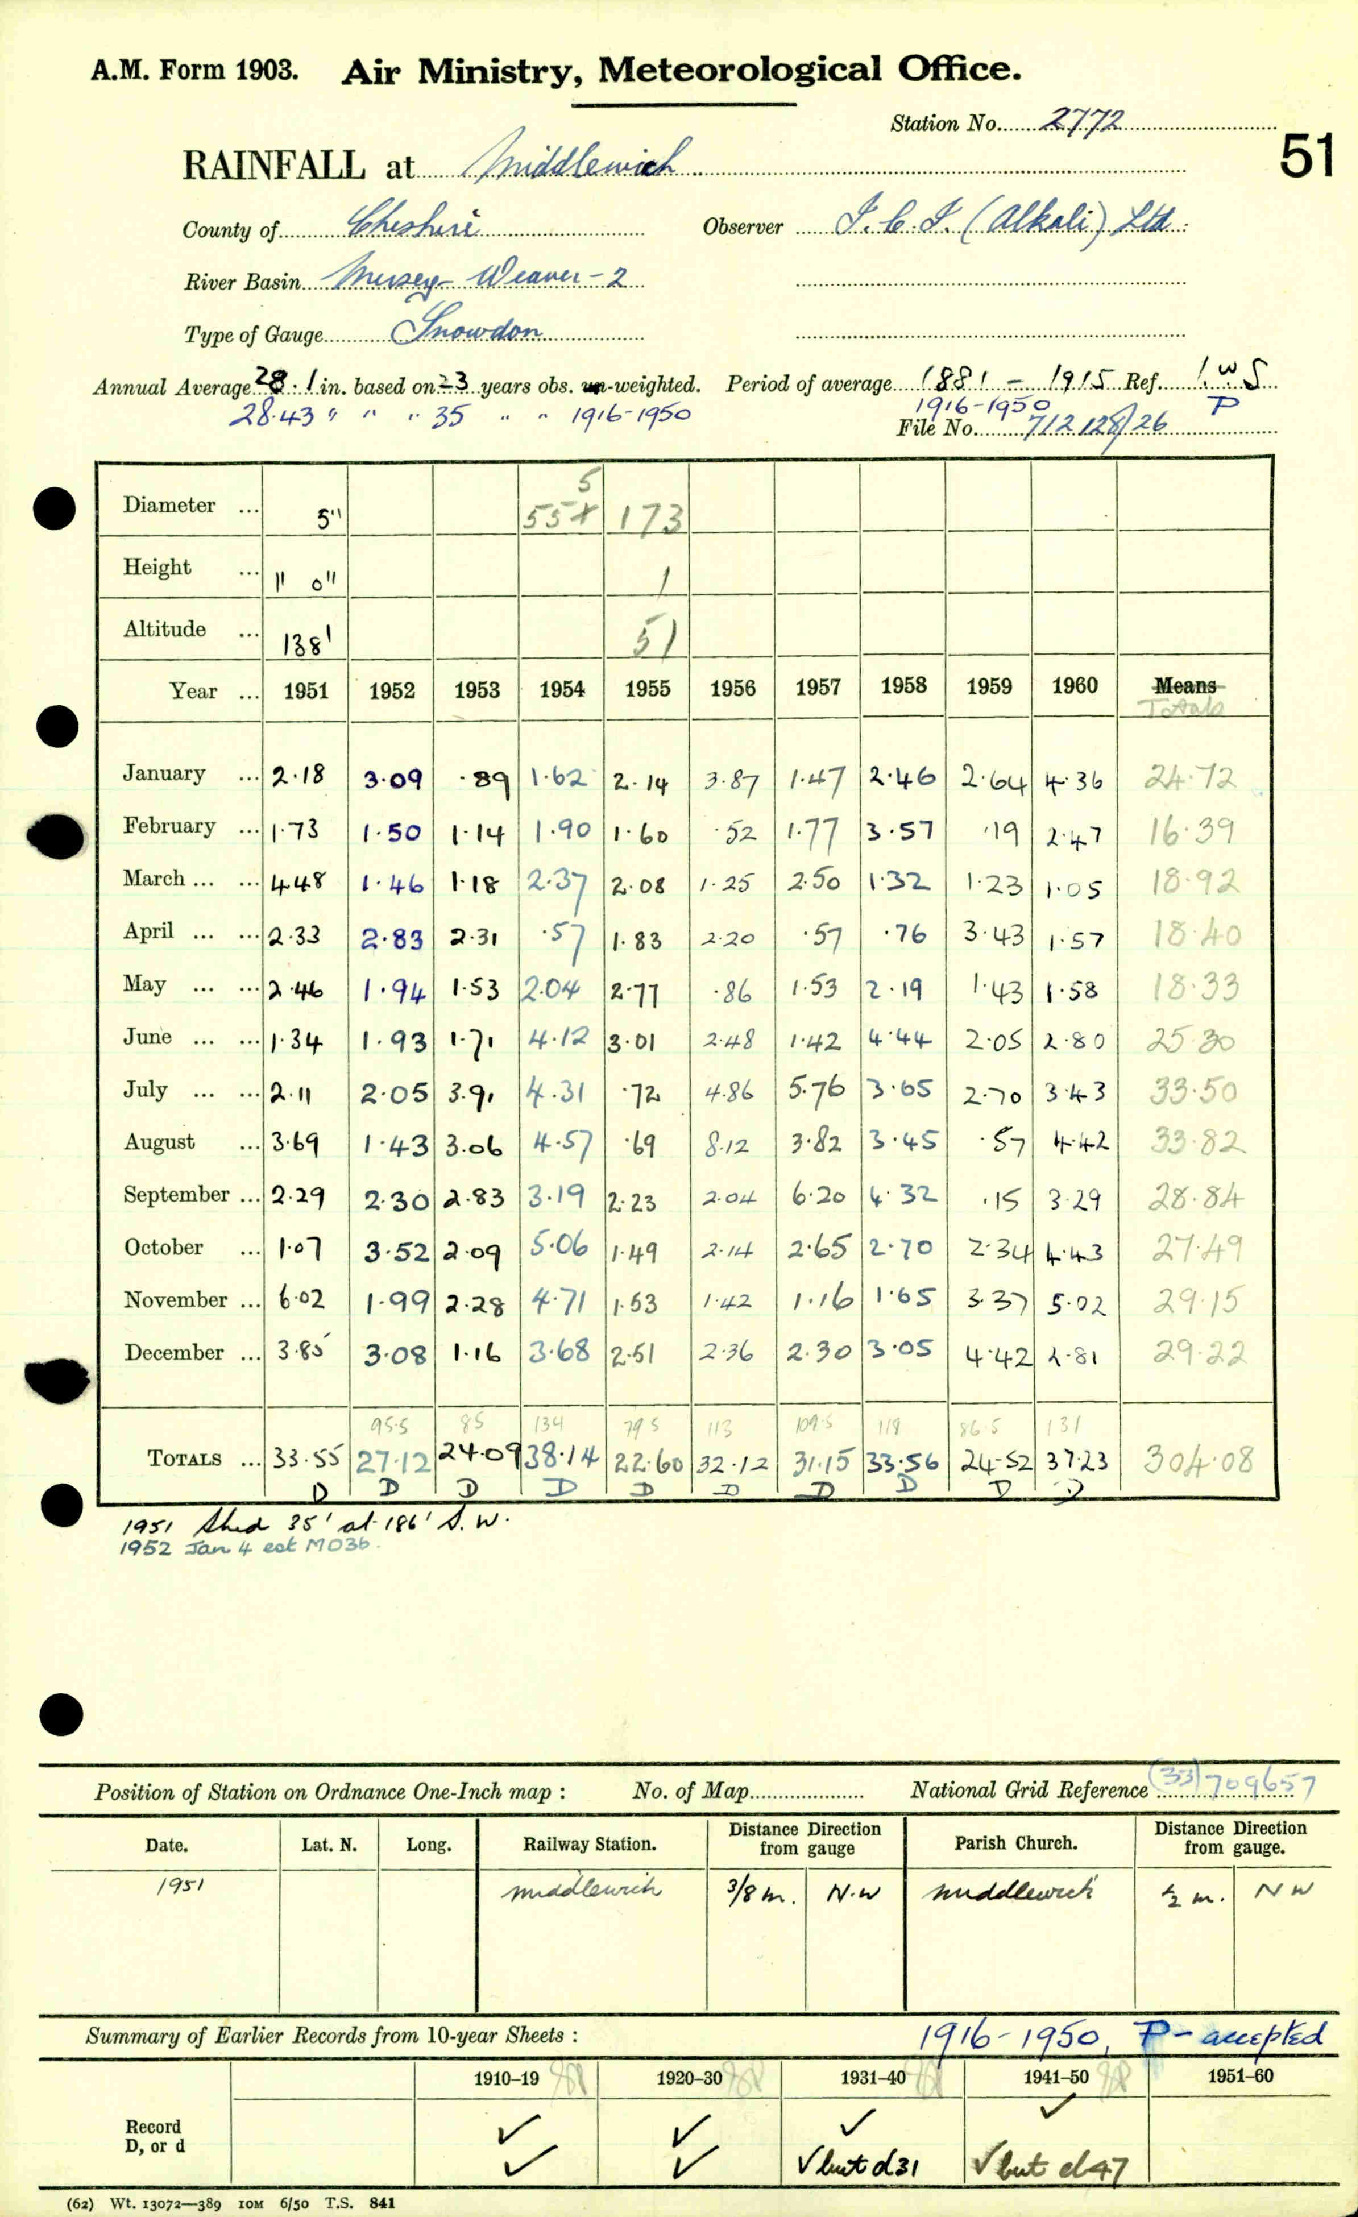 A.M. Form 1903. Air Ministry, Meteorological Office.
Station No. 2772
51
RAINFALL at Middlewich
County of Cheshire Observer I.C.I. (Alkali) Ltd.
River Basin Mersey-Weaver-2
Type of Gauge Snowdon
Annual Average 28.1 in. based on 23 years obs. un-weighted. Period of average 1881 - 1915 Ref. 1.W.S
28.43 " " " 35 " " 1916-1950 1916-1950 P
File No. 712128/26
Diameter ... 5" 5 55+ 173
Height ... 1' 0" 1
Altitude ... 138' 51
Year ... 1951 1952 1953 1954 1955 1956 1957 1958 1959 1960 Means
Totals
January ... 2.18 3.09 .89 1.62 2.14 3.87 1.47 2.46 2.64 4.36 24.72
February ... 1.73 1.50 1.14 1.90 1.60 .52 1.77 3.57 .19 2.47 16.39
March ... ... 4.48 1.46 1.18 2.37 2.08 1.25 2.50 1.32 1.23 1.05 18.92
April ... ... 2.33 2.83 2.31 .57 1.83 2.20 .57 .76 3.43 1.57 18.40
May ... ... 2.46 1.94 1.53 2.04 2.77 .86 1.53 2.19 1.43 1.58 18.33
June ... ... 1.34 1.93 1.71 4.12 3.01 2.48 1.42 4.44 2.05 2.80 25.30
July ... ... 2.11 2.05 3.91 4.31 .72 4.86 5.76 3.65 2.70 3.43 33.50
August ... 3.69 1.43 3.06 4.57 .69 8.12 3.82 3.45 .57 4.42 33.82
September ... 2.29 2.30 2.83 3.19 2.23 2.04 6.20 4.32 .15 3.29 28.84
October ... 1.07 3.52 2.09 5.06 1.49 2.14 2.65 2.70 2.34 4.43 27.49
November ... 6.02 1.99 2.28 4.71 1.53 1.42 1.16 1.65 3.37 5.02 29.15
December ... 3.85 3.08 1.16 3.68 2.51 2.36 2.30 3.05 4.42 2.81 29.22
95.5 85 134 79.5 113 109.5 118 86.5 131
TOTALS ... 33.55 27.12 24.09 38.14 22.60 32.12 31.15 33.56 24.52 37.23 304.08
D D D D D D D D D D
1951 Shed 35' at 186' S.W.
1952 Jan 4 est MO3b.
Position of Station on Ordnance One-Inch map : No. of Map National Grid Reference (33) 709657
Date. Lat. N. Long. Railway Station. Distance from Direction gauge Parish Church. Distance from Direction gauge.
1951 Middlewich 3/8 m. N.W Middlewich 1/2 m. N W
Summary of Earlier Records from 10-year Sheets : 1916-1950, P- accepted
1910–19 1920–30 1931–40 1941–50 1951–60
Record ✓ ✓ ✓ ✓
D, or d ✓ ✓ ✓ but d31 ✓ but d47
(62) Wt. 13072—389 10M 6/50 T.S. 841